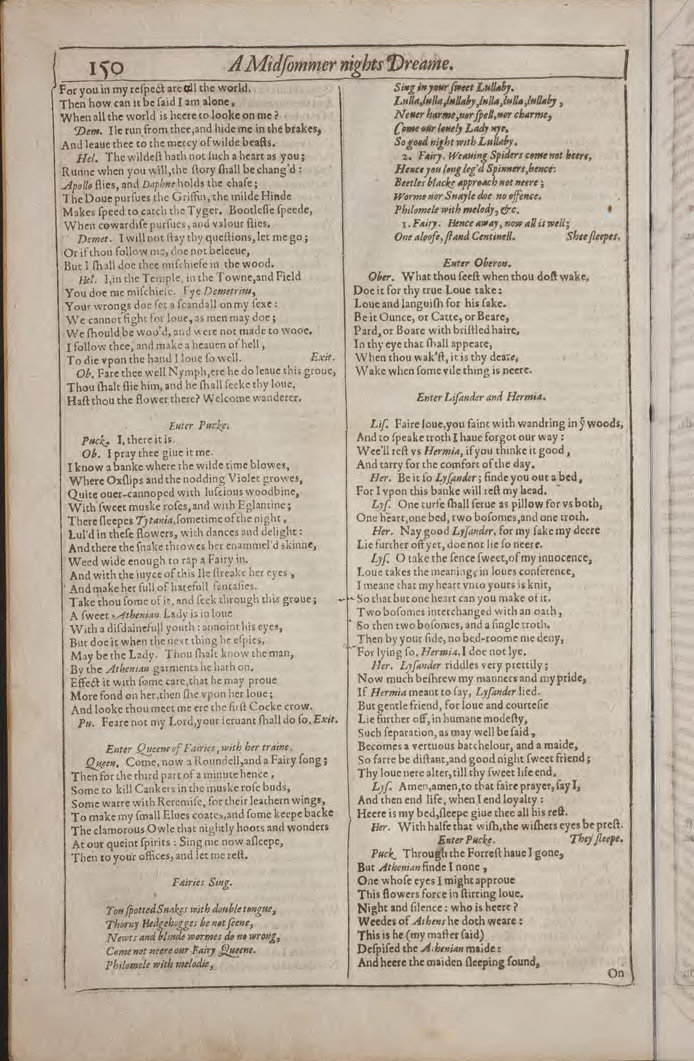 150
A Midſommer nights Dreame.
For you in my reſpect are all the world.
Then how can it be ſaid I am alone,
When all the world is heere to looke on me?
Dem. Ile run from thee, and hide me in the brakes,
And leaue thee to the mercy of wilde beaſts.
Hel. The wildeſt hath not ſuch a heart as you;
Runne when you will, the ſtory ſhall be chang'd:
Apollo flies, and Daphne holds the chaſe;
The Doue purſues the Griffin, the milde Hinde
Makes ſpeed to catch the Tyger. Bootleſſe ſpeede,
When cowardiſe purſues, and valour flies.
Demet. I will not ſtay thy queſtions, let me go;
Or if thou follow me, doe not beleeue,
But I ſhall doe thee miſchiefe in the wood.
Hel. I, in the Temple, in the Towne, and Field
You doe me miſchiefe. Fye Demetrius,
Your wrongs doe ſet a ſcandall on my ſexe:
We cannot fight for loue, as men may doe;
We ſhould be woo'd, and were not made to wooe.
I follow thee, and make a heauen of hell,
To die vpon the hand I loue ſo well. Exit.
Ob. Fare thee well Nymph, ere he do leaue this groue,
Thou ſhalt flie him, and he ſhall ſeeke thy loue.
Haſt thou the flower there? Welcome wanderer.
Enter Pucke.
Puck. I, there it is.
Ob. I pray thee giue it me.
I know a banke where the wilde time blowes,
Where Oxſlips and the nodding Violet growes,
Quite ouer-cannoped with luſcious woodbine,
With ſweet muske roſes, and with Eglantine;
There ſleepes Tytania, ſometime of the night,
Lul'd in theſe flowers, with dances and delight:
And there the ſnake throwes her enammel'd skinne,
Weed wide enough to rap a Fairy in.
And with the iuyce of this Ile ſtreake her eyes,
And make her full of hatefull fantaſies.
Take thou ſome of it, and ſeek through this groue;
A ſweet Athenian Lady is in loue
With a diſdainefull youth: annoint his eyes,
But doe it when the next thing he eſpies,
May be the Lady. Thou ſhalt know the man,
By the Athenian garments he hath on.
Effect it with ſome care, that he may proue
More fond on her, then ſhe vpon her loue;
And looke thou meet me ere the firſt Cocke crow.
Pu. Feare not my Lord, your ſeruant ſhall do ſo. Exit.
Enter Queene of Fairies, with her traine.
Queen. Come, now a Roundell, and a Fairy ſong;
Then for the third part of a minute hence,
Some to kill Cankers in the muske roſe buds,
Some warre with Reremiſe, for their leathern wings,
To make my ſmall Elues coates, and ſome keepe backe
The clamorous Owle that nightly hoots and wonders
At our queint ſpirits: Sing me now aſleepe,
Then to your offices, and let me reſt.
Fairies Sing.
You ſpotted Snakes with double tongue,
Thorny Hedgehogges be not ſeene,
Newts and blinde wormes do no wrong,
Come not neere our Fairy Queene.
Philomele with melodie,
Sing in your ſweet Lullaby.
Lulla, lulla, lullaby, lulla, lulla, lullaby,
Neuer harme, nor ſpell, nor charme,
Come our louely Lady nye,
So good night with Lullaby.
2. Fairy. Weauing Spiders come not heere,
Hence you long leg'd Spinners, hence:
Beetles blacke approach not neere;
Worme nor Snayle doe no offence.
Philomele with melody, &c.
1. Fairy. Hence away, now all is well;
One aloofe, ſtand Centinell. Shee ſleepes.
Enter Oberon.
Ober. What thou ſeeſt when thou doſt wake,
Doe it for thy true Loue take:
Loue and languiſh for his ſake.
Be it Ounce, or Catte, or Beare,
Pard, or Boare with briſtled haire,
In thy eye that ſhall appeare,
When thou wak'ſt, it is thy deare,
Wake when ſome vile thing is neere.
Enter Liſander and Hermia.
Liſ. Faire loue, you faint with wandring in ỹ woods,
And to ſpeake troth I haue forgot our way:
Wee'll reſt vs Hermia, if you thinke it good,
And tarry for the comfort of the day.
Her. Be it ſo Lyſander; finde you out a bed,
For I vpon this banke will reſt my head.
Lyſ. One turfe ſhall ſerue as pillow for vs both,
One heart, one bed, two boſomes, and one troth.
Her. Nay good Lyſander, for my ſake my deere
Lie further off yet, doe not lie ſo neere.
Lyſ. O take the ſence ſweet, of my innocence,
Loue takes the meaning, in loues conference,
I meane that my heart vnto yours is knit,
So that but one heart can you make of it.
Two boſomes interchanged with an oath,
So then two boſomes, and a ſingle troth.
Then by your ſide, no bed-roome me deny,
For lying ſo, Hermia, I doe not lye.
Her. Lyſander riddles very prettily;
Now much beſhrew my manners and my pride,
If Hermia meant to ſay, Lyſander lied.
But gentle friend, for loue and courteſie
Lie further off, in humane modeſty,
Such ſeparation, as may well be ſaid,
Becomes a vertuous batchelour, and a maide,
So farre be diſtant, and good night ſweet friend;
Thy loue nere alter, till thy ſweet life end.
Lyſ. Amen, amen, to that faire prayer, ſay I,
And then end life, when I end loyalty:
Heere is my bed, ſleepe giue thee all his reſt.
Her. With halfe that wiſh, the wiſhers eyes be preſt.
Enter Pucke. They ſleepe.
Puck. Through the Forreſt haue I gone,
But Athenian finde I none,
One whoſe eyes I might approue
This flowers force in ſtirring loue.
Night and ſilence: who is heere?
Weedes of Athens he doth weare:
This is he (my maſter ſaid)
Deſpiſed the Athenian maide:
And heere the maiden ſleeping ſound,
On